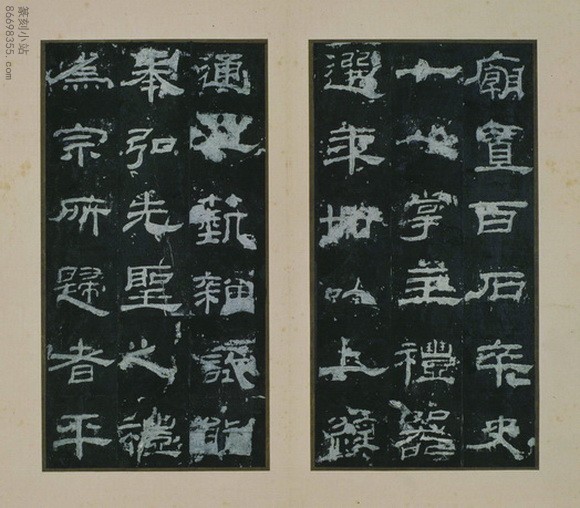 廟置百石卒史
掌主禮器
選年以上經
通藝雜試能
奉弘先聖之禮
為宗所歸者平
篆刻小站
86698355.com